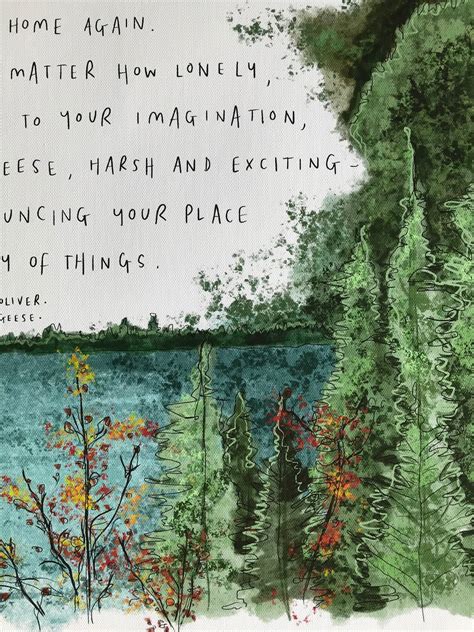 HOME AGAIN.
MATTER HOW LONELY,
TO YOUR IMAGINATION,
EESE, HARSH AND EXCITING -
UNCING YOUR PLACE
Y OF THINGS.
OLIVER.
GEESE.